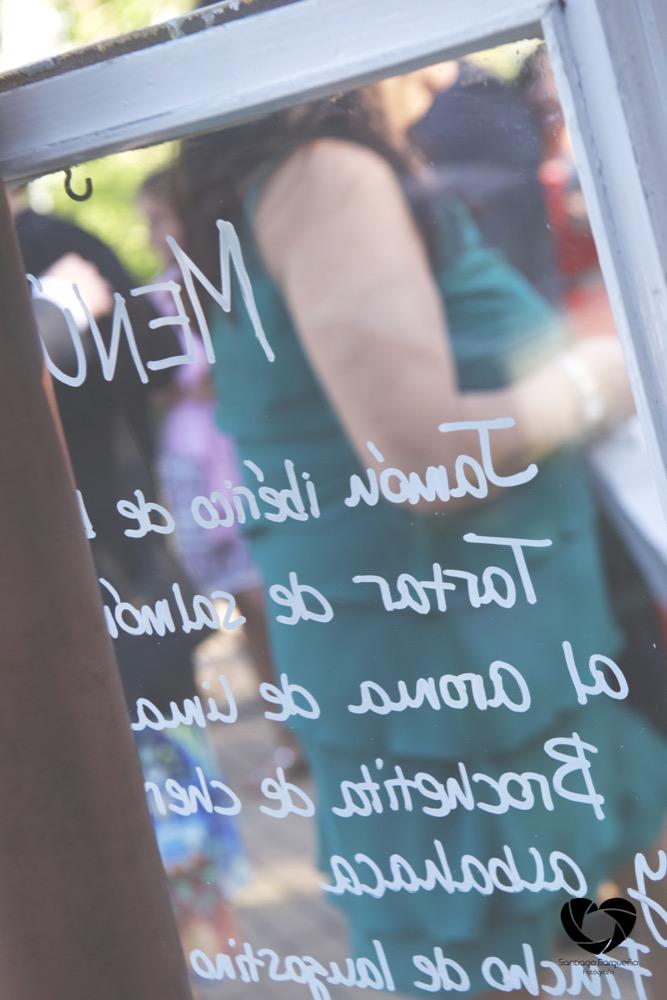 MENÚ
Jamón ibérico de
Tartar de salmón
al aroma de lima
Brochetita de cher
y albahaca
Pincho de langostino
Santiago Bargueño
Fotógrafo